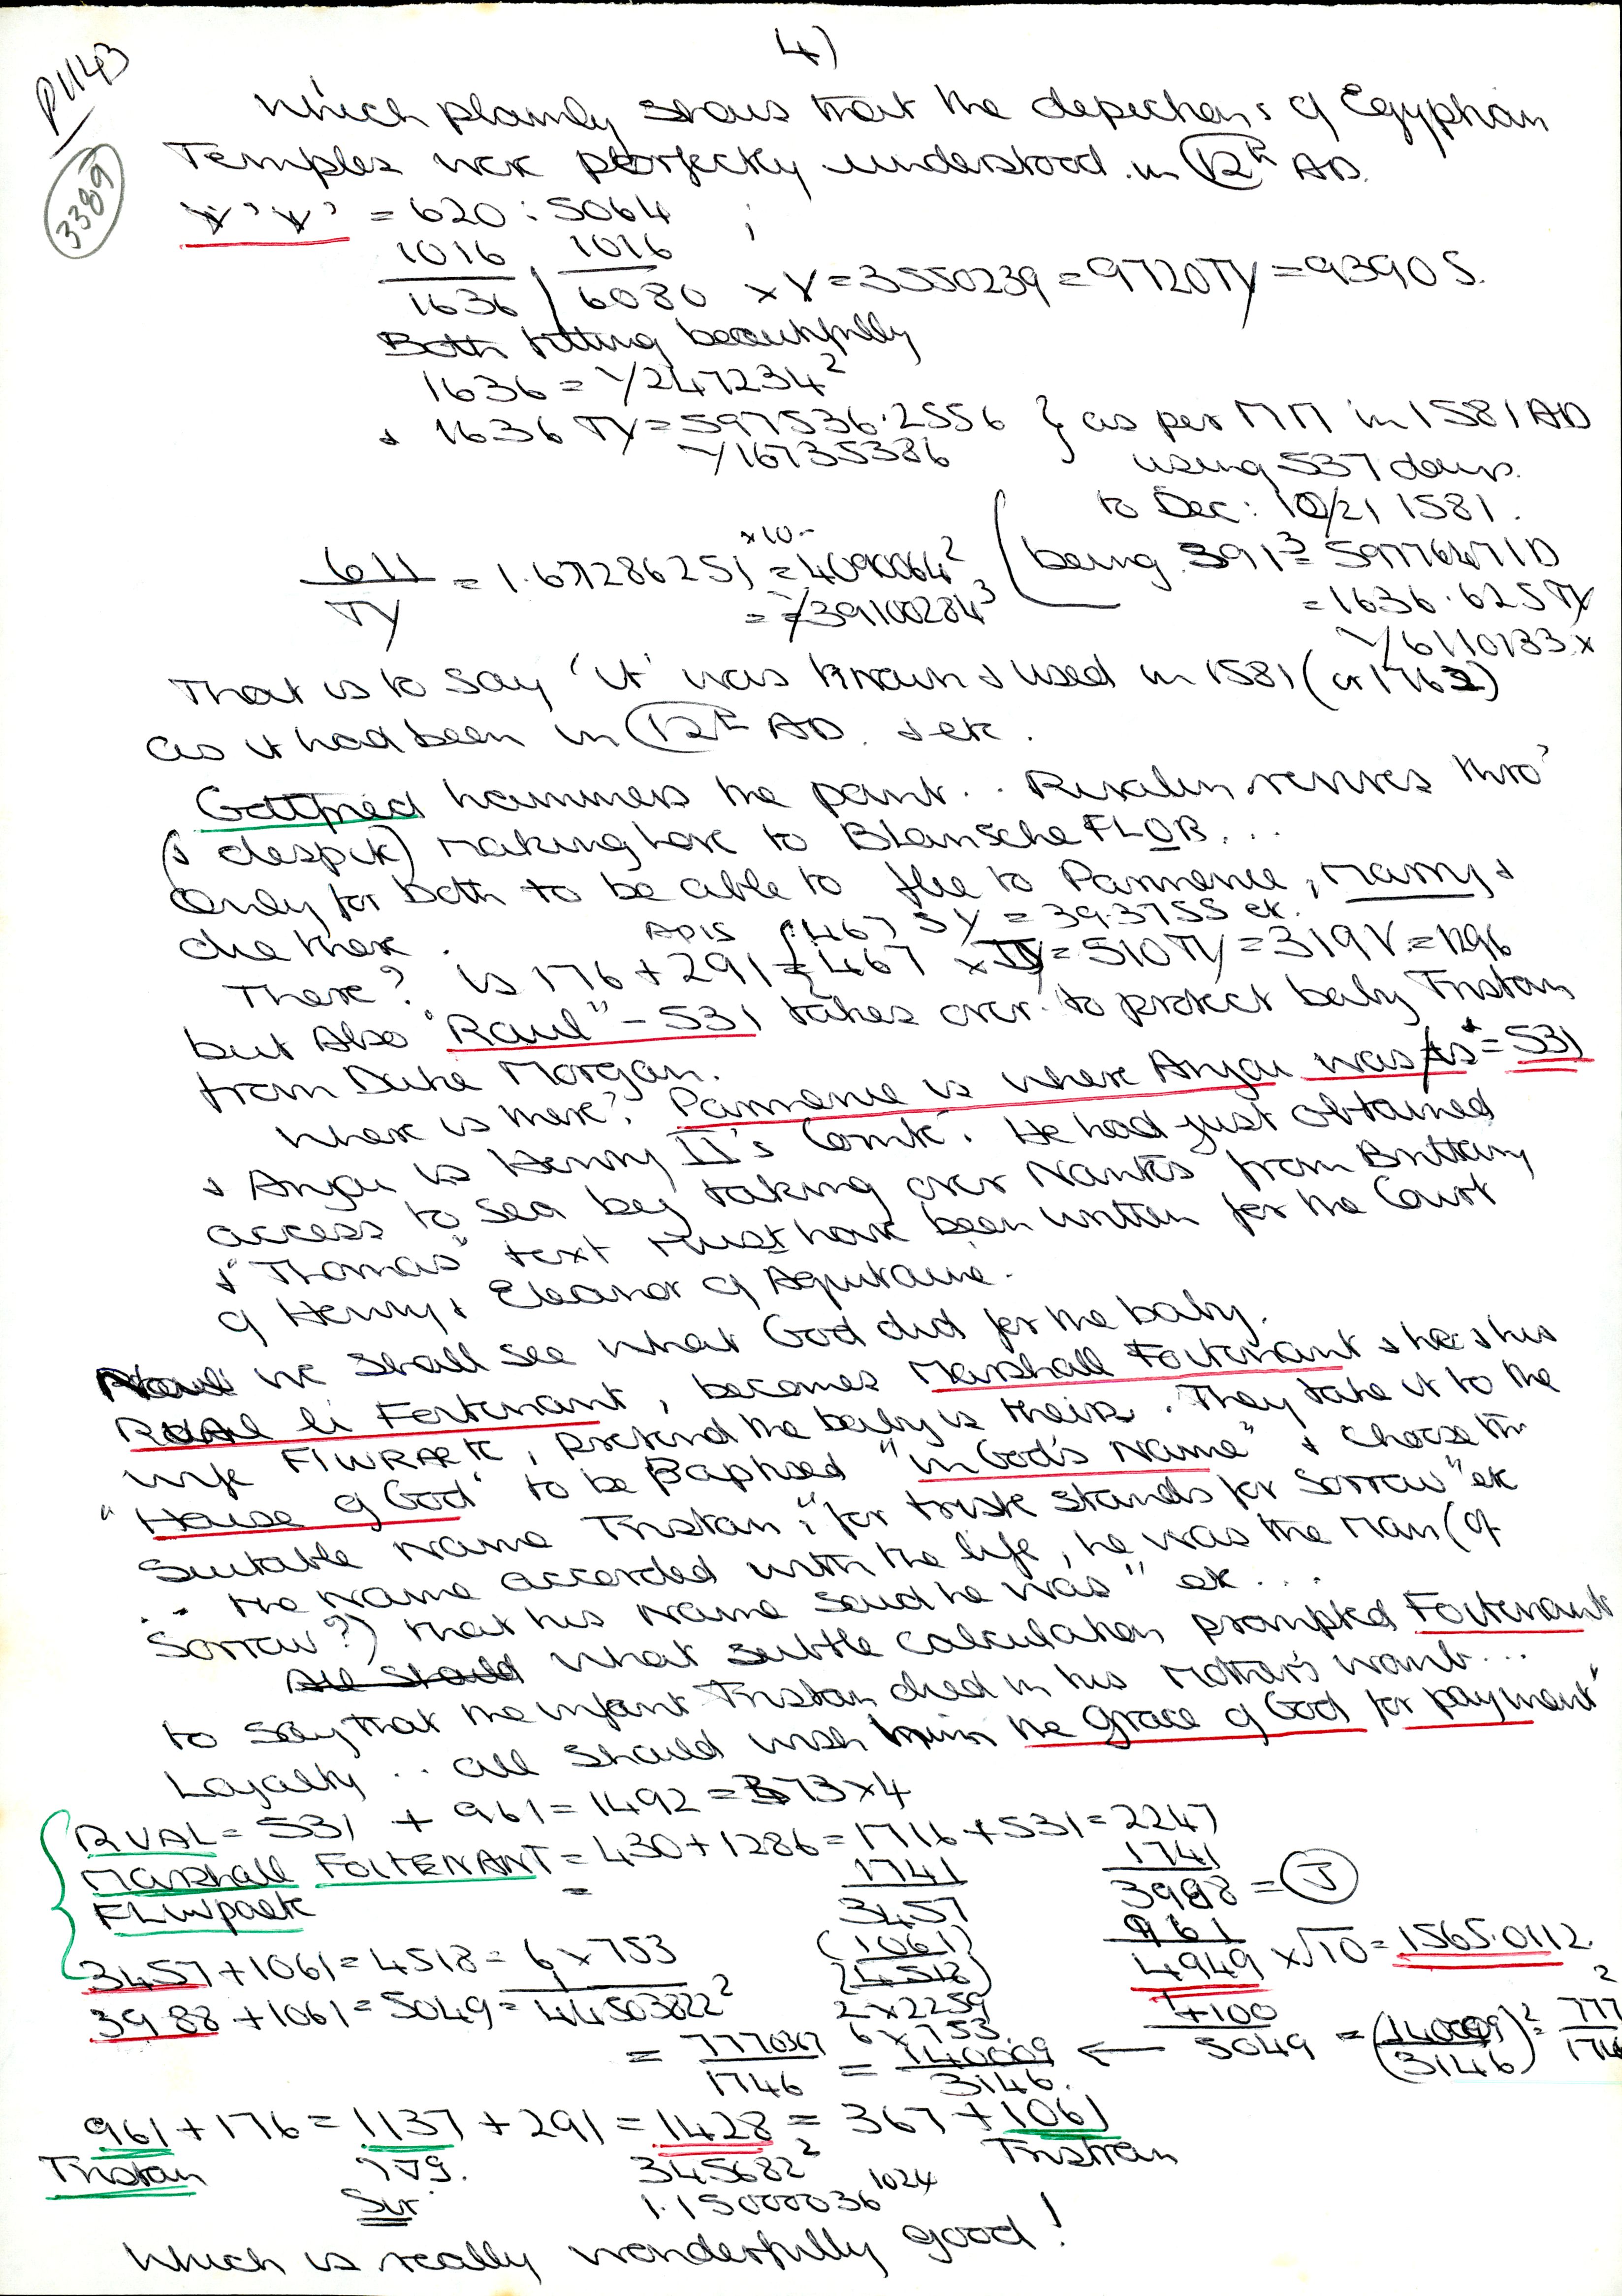 4)
P1143
3389
Which plainly shows that the depictions of Egyptian
Temples were perfectly understood in 12th AD.
= 620 : 5064 ;
1016 1016
1636 / 6080 x Y = 3550239 = 9720TY = 9390 S.
Both fitting beautifully
1636 = √247234²
& 1636 TY = 597536.2556 } as per MM in 1581 AD
√16735386 using 537 days
to Dec: 10/21 1581.
611/TY = 1.67286251 x10 = 4090064² (being 391³ = 59776471D
= √39100284³ = 1636.625TY
√6110133 x
That is to say 'it' was known & used in 1581 (or 1762)
as it had been in 12th AD. & etc.
Gottfried hammers the point.. Rivalin revives thro'
(& despite) making love to BlanscheFLOR...
Only for both to be able to flee to Parmenie, marry &
die there.
APIS 467 SY = 39.3755 etc.
There? is 176 + 291 = 467 x TY = 510TY = 319V = 1296
but Also "Raul" - 531 takes over to protect baby Tristan
from Duke Morgan.
Where is there? Parmenie is where Anjou was/is = 531
& Anjou is Henry II's Comté. He had just obtained
access to sea by taking over Nantes from Brittany
& "Thomas" text must have been written for the Court
of Henry & Eleanor of Aquitaine.
we shall see what God did for the baby.
RUAL li Foitenant, becomes Marshall Foitenant & he & his
wife FlWRAETE, pretend the baby is theirs. They take it to the
"House of God" to be Baptised "in God's Name" & choose the
suitable name Tristan; "for triste stands for sorrow" etc
.. the name accorded with the life, he was the man (of
Sorrow?) that his name said he was" etc...
All should what subtle calculation prompted Foitenant
to say that the infant Tristan died in his Mother's womb...
Loyalty .. all should wish him the grace of God for payment"
RUAL = 531 + 961 = 1492 = 373x4
Marshall FOITENANT = 430 + 1286 = 1716 + 531 = 2247
FLWpaete = 1741 1741
3457 3988 = J
3457 + 1061 = 4518 = 6 x 753 (1061) 961
(4518) 4949 x √10 = 1565.0112
3988 + 1061 = 5049 = 44503822² 2 x 2259 +100
6 x 753 5049 = (140009/3146)² = 777
= 7770367/1746 = 140009/3146 ←
961 + 176 = 1137 + 291 = 1428 = 367 + 1061
Tristan 345682² Tristran
Sir 1.15000036¹⁰²⁴
Which is really wonderfully good!